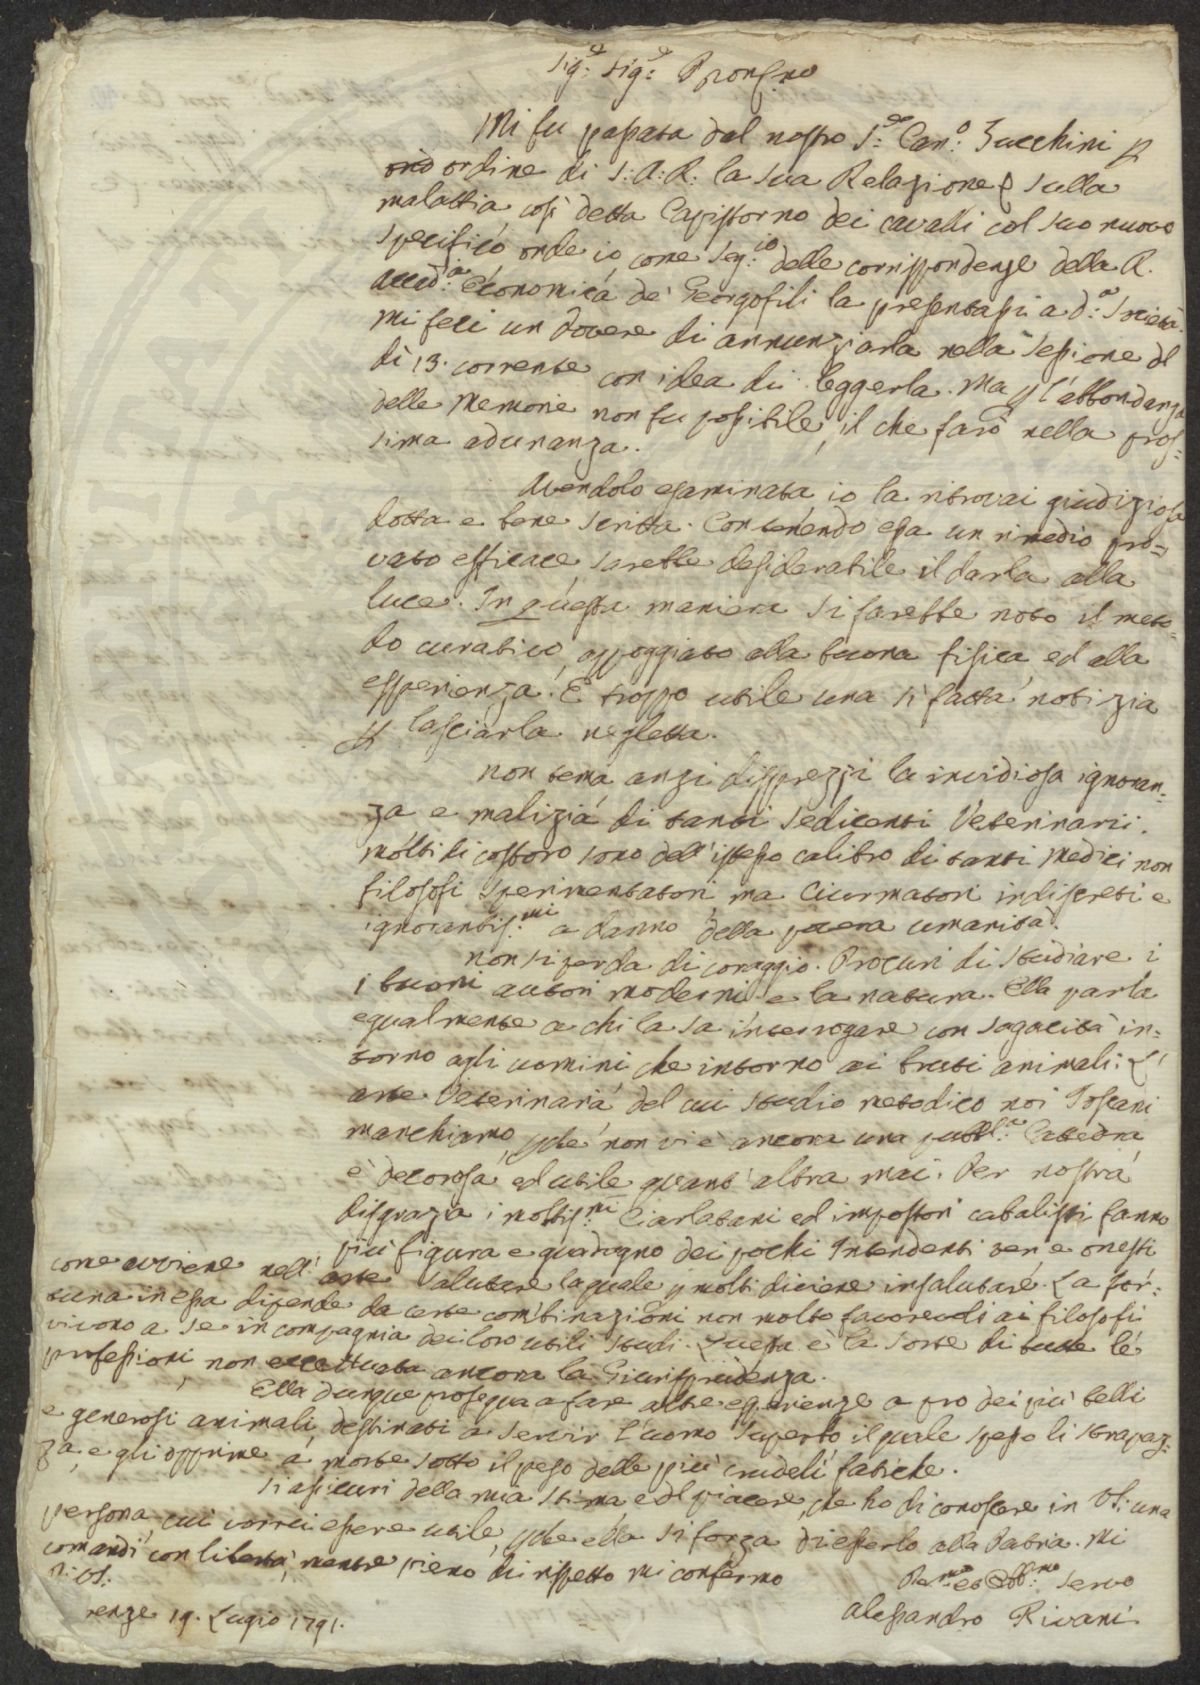 Sig:e Sig:e Pron Cmo
Mi fu passata dal nostro S:re Can:o Zucchini p
ordine di S: A: R: la sua Relazione sulla
malattia così detta Capistorno dei cavalli col suo nuovo
specifico onde io come Seg:io delle corrispondenze della R.
Accad:a Economica de' Georgofili la presentassi a d:a Società.
Mi feci un dovere di annunziarla nella Sessione del
dì 13. corrente con idea di leggerla. Ma p l'abbondanza
delle Memorie non fu possibile, il che farò nella pros=
sima adunanza.
Avendolo esaminata io la ritrovai giudiziosa
dotta e bene scritta. Contenendo essa un rimedio pro=
vato efficace, sarebbe desiderabile il darla alla
luce. In questa maniera si farebbe noto il meto=
do curativo, appoggiato alla buona fisica ed alla
esperienza. È troppo utile una sì fatta notizia
p lasciarla negletta.
Non tema anzi disprezzi la invidiosa ignoran=
za e malizia di tanti sedicenti Veterinarii.
Molti di costoro sono dell'istesso calibro di tanti Medici non
filosofi sperimentatori ma Ciurmatori indiscreti e
ignorantis:mi a danno della povera umanità.
Non si perda di coraggio. Procuri di studiare i
i buoni autori moderni e la natura. Ella parla
egualmente a chi la sa interrogare con sagacità in=
torno agli uomini che intorno ai bruti animali: L'
arte Veterinaria del cui studio metodico noi Toscani
manchiamo, pche non vi è ancora una pubbl:a Cattedra
è decorosa ed utile quant'altra mai. Per nostra
disgrazia i moltis:mi Ciarlatani ed impostori cabalisti fanno
più figura e guadagno dei pochi Intendenti veri e onesti
come avviene nell'arte salutare la quale p molti diviene insalutare. La for=
tuna in essa dipende da certe combinazioni non molto favorevoli ai filosofi
vivono a se in compagnia dei loro utili studi. Questa è la sorte di tutte le
professioni, non eccettuata ancora la Giurisprudenza.
Ella dunque prosegua a fare altre esperienze a pro dei più belli
e generosi animali, destinati a servir l'uomo superbo il quale spesso li strapaz=
za, e gli opprime a morte sotto il peso delle più crudeli fatiche.
Si assicuri della mia stima e del piacere, che ho di conoscere in VS: una
persona, cui vorrei essere utile, pche ella si sforza di esserlo alla Patria. Mi
comandi con libertà, mentre pieno di rispetto mi confermo
VS:
Dev:mo ed Obb:mo Servo
renze 19. Luglio 1791.
Alessandro Rivani